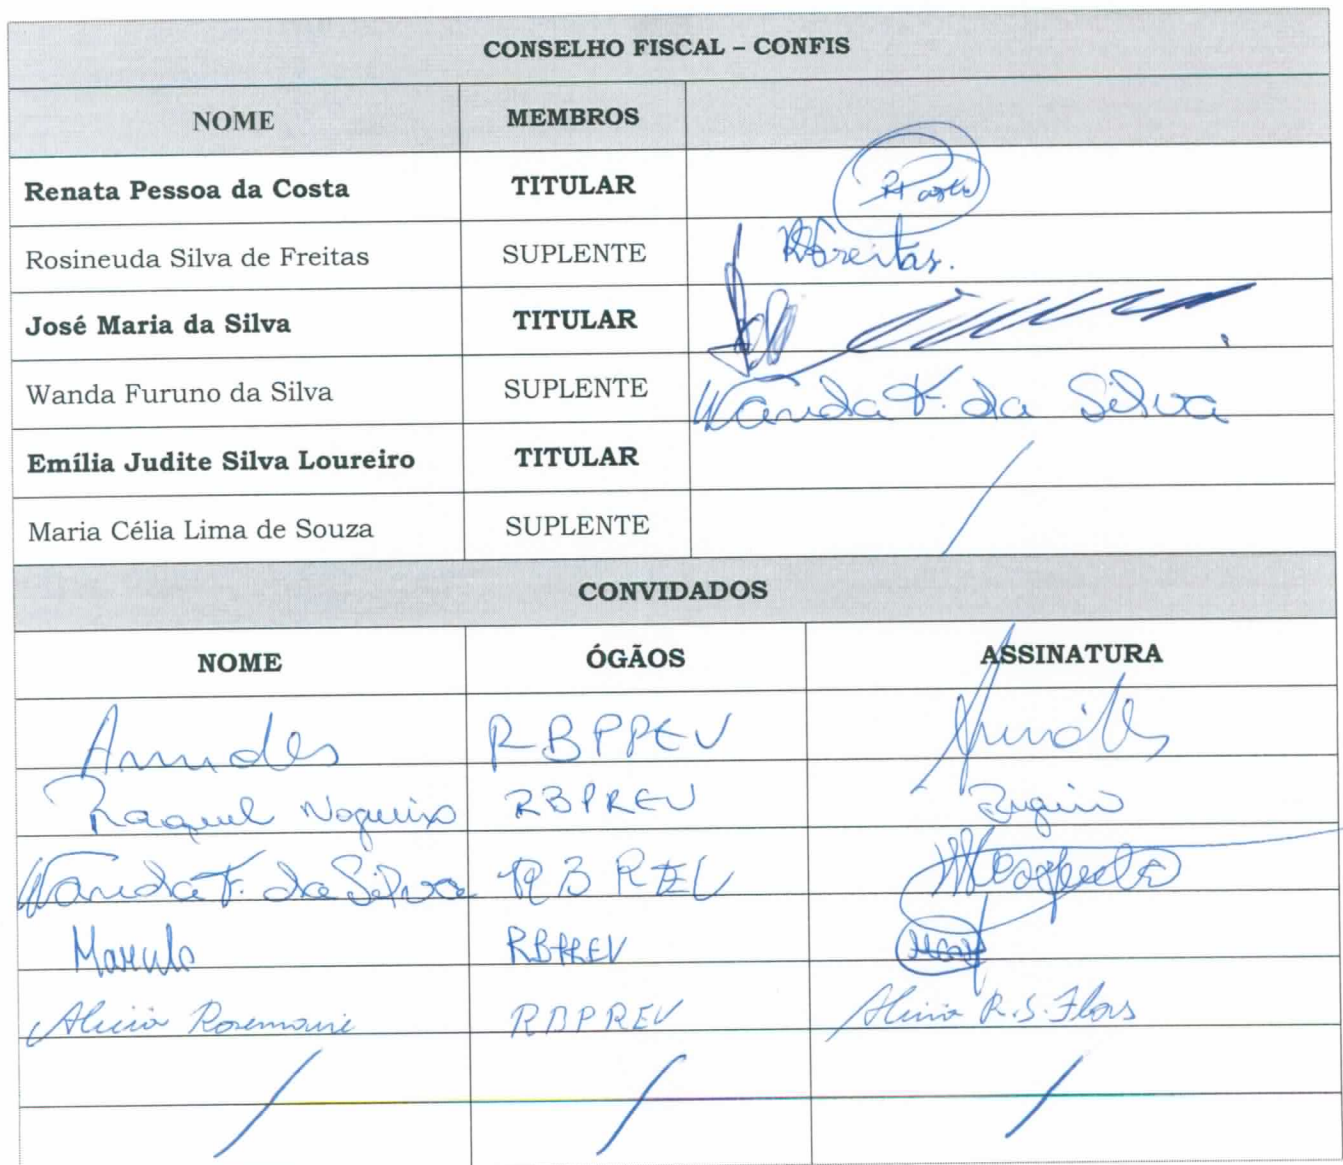 CONSELHO FISCAL – CONFIS
NOME MEMBROS
Renata Pessoa da Costa TITULAR
Rosineuda Silva de Freitas SUPLENTE RSFreitas.
José Maria da Silva TITULAR
Wanda Furuno da Silva SUPLENTE Wanda F. da Silva
Emília Judite Silva Loureiro TITULAR
Maria Célia Lima de Souza SUPLENTE
CONVIDADOS
NOME ÓGÃOS ASSINATURA
RBPPEV
Raquel Nogueira RBPREV
Wanda F. da Silva
RBPREV
Rosemarie RBPREV R.S.